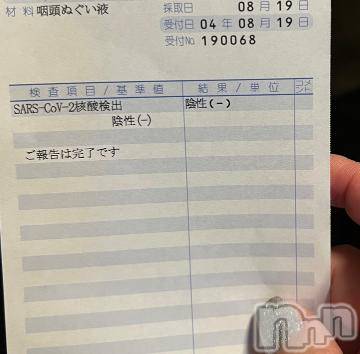 材料 咽頭ぬぐい液
採取日 08月19日
受付日 04年08月19日
受付No 190068
検査項目/基準値 結果/単位 コメント
SARS-CoV-2核酸検出 陰性(-)
陰性(-)
ご報告は完了です